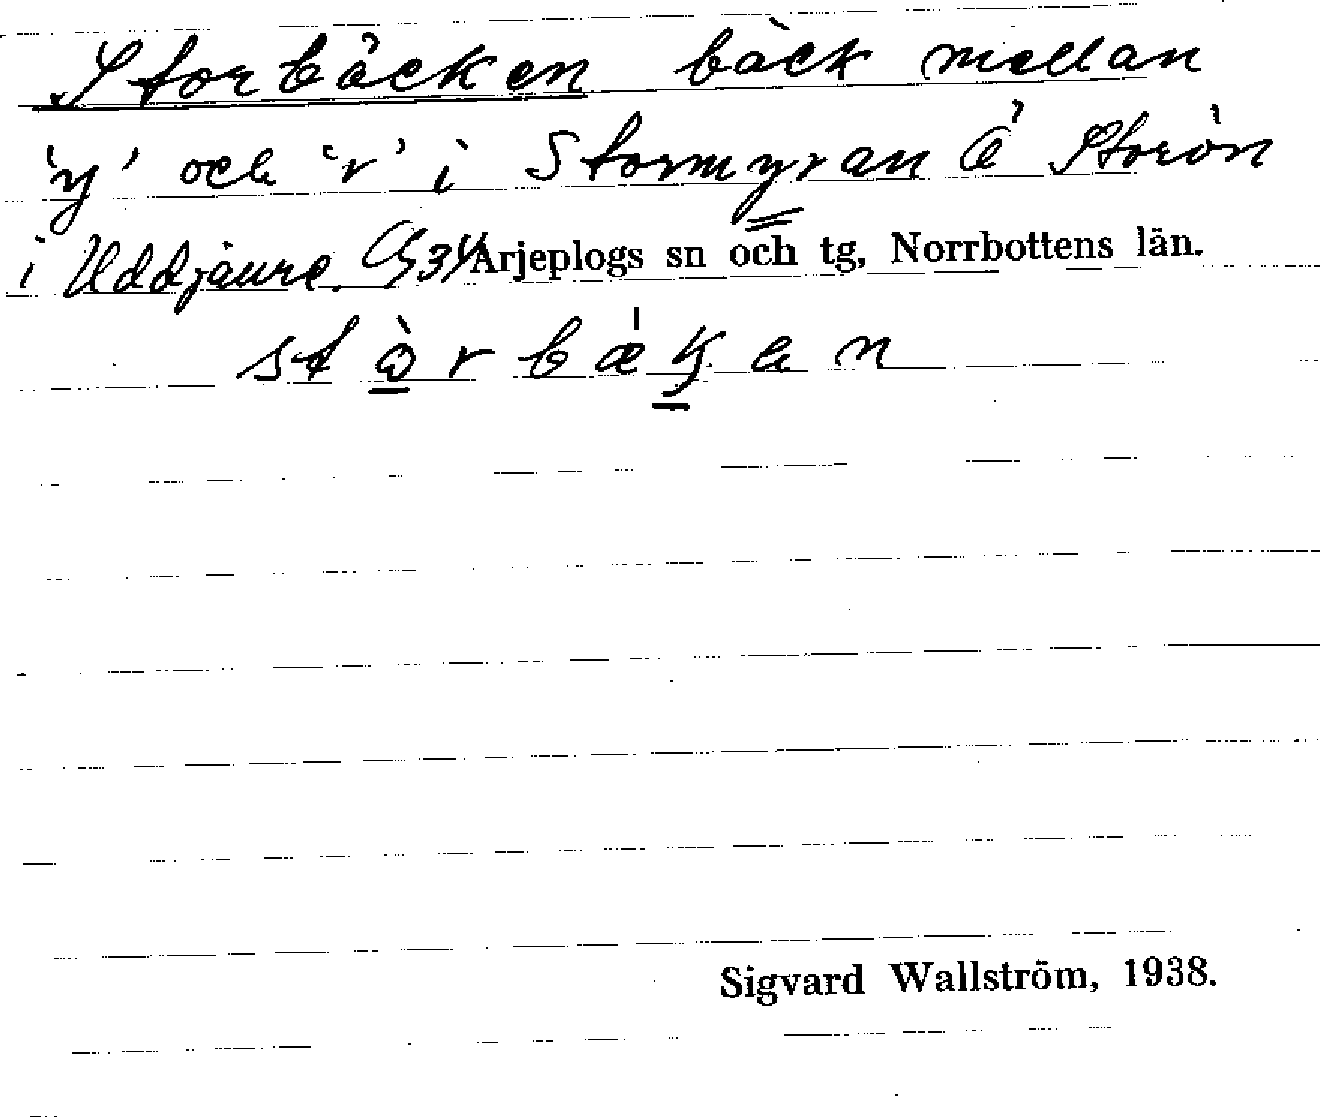 Storbäcken bäck mellan
'y' och 'r' i Stormyran å Storön
i Uddjaure. Arjeplogs sn och tg, Norrbottens län.
Sigvard Wallström, 1938.